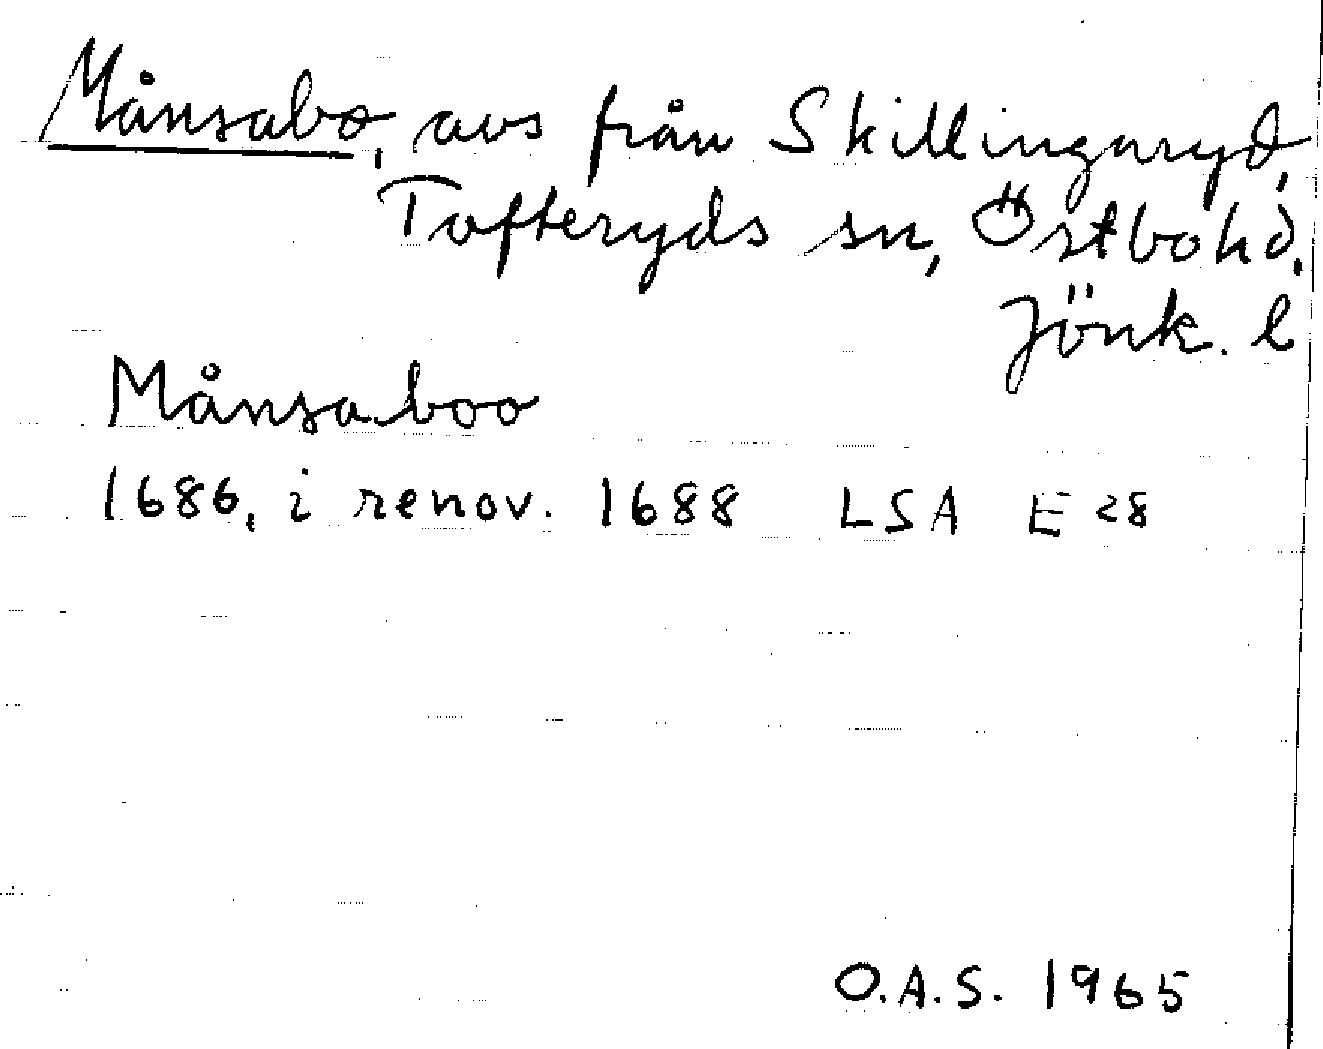 Månsabo, avs från Skillingaryd,
Tofteryds sn, Östbo hd.
Jönk. l
Månsaboo
1686, i renov. 1688 LSA E 28
O.A.S. 1965